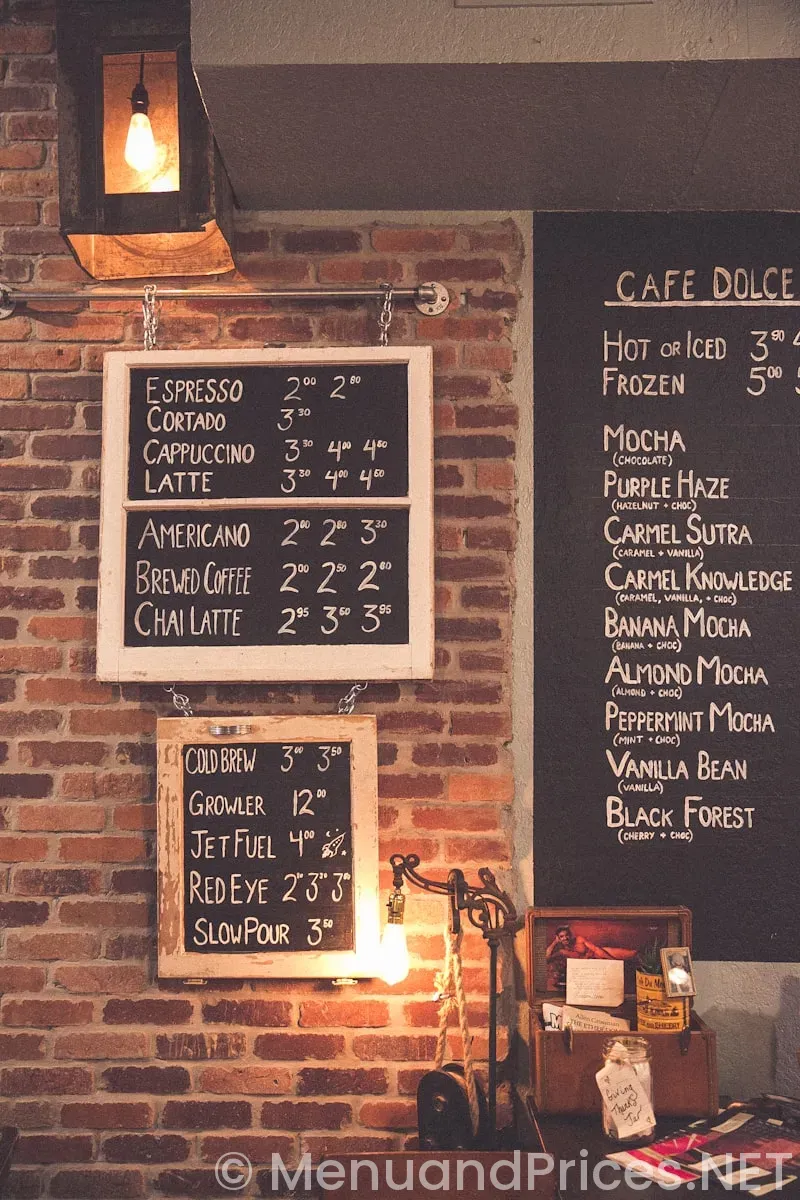 ESPRESSO 2⁰⁰ 2⁸⁰
CORTADO 3³⁰
CAPPUCCINO 3³⁰ 4⁰⁰ 4⁶⁰
LATTE 3³⁰ 4⁰⁰ 4⁶⁰
AMERICANO 2⁰⁰ 2⁸⁰ 3³⁰
BREWED COFFEE 2⁰⁰ 2⁵⁰ 2⁸⁰
CHAI LATTE 2⁹⁵ 3⁵⁰ 3⁹⁵
COLD BREW 3⁰⁰ 3⁵⁰
GROWLER 12⁰⁰
JET FUEL 4⁰⁰
RED EYE
SLOW POUR 3⁵⁰
CAFE DOLCE
HOT OR ICED 3⁹⁰
FROZEN 5⁰⁰
MOCHA
(CHOCOLATE)
PURPLE HAZE
(HAZELNUT + CHOC)
CARMEL SUTRA
(CARAMEL + VANILLA)
CARMEL KNOWLEDGE
(CARAMEL, VANILLA, + CHOC)
BANANA MOCHA
(BANANA + CHOC)
ALMOND MOCHA
(ALMOND + CHOC)
PEPPERMINT MOCHA
(MINT + CHOC)
VANILLA BEAN
(VANILLA)
BLACK FOREST
(CHERRY + CHOC)
Giving
Thanks
Jar
© MenuandPrices.NET